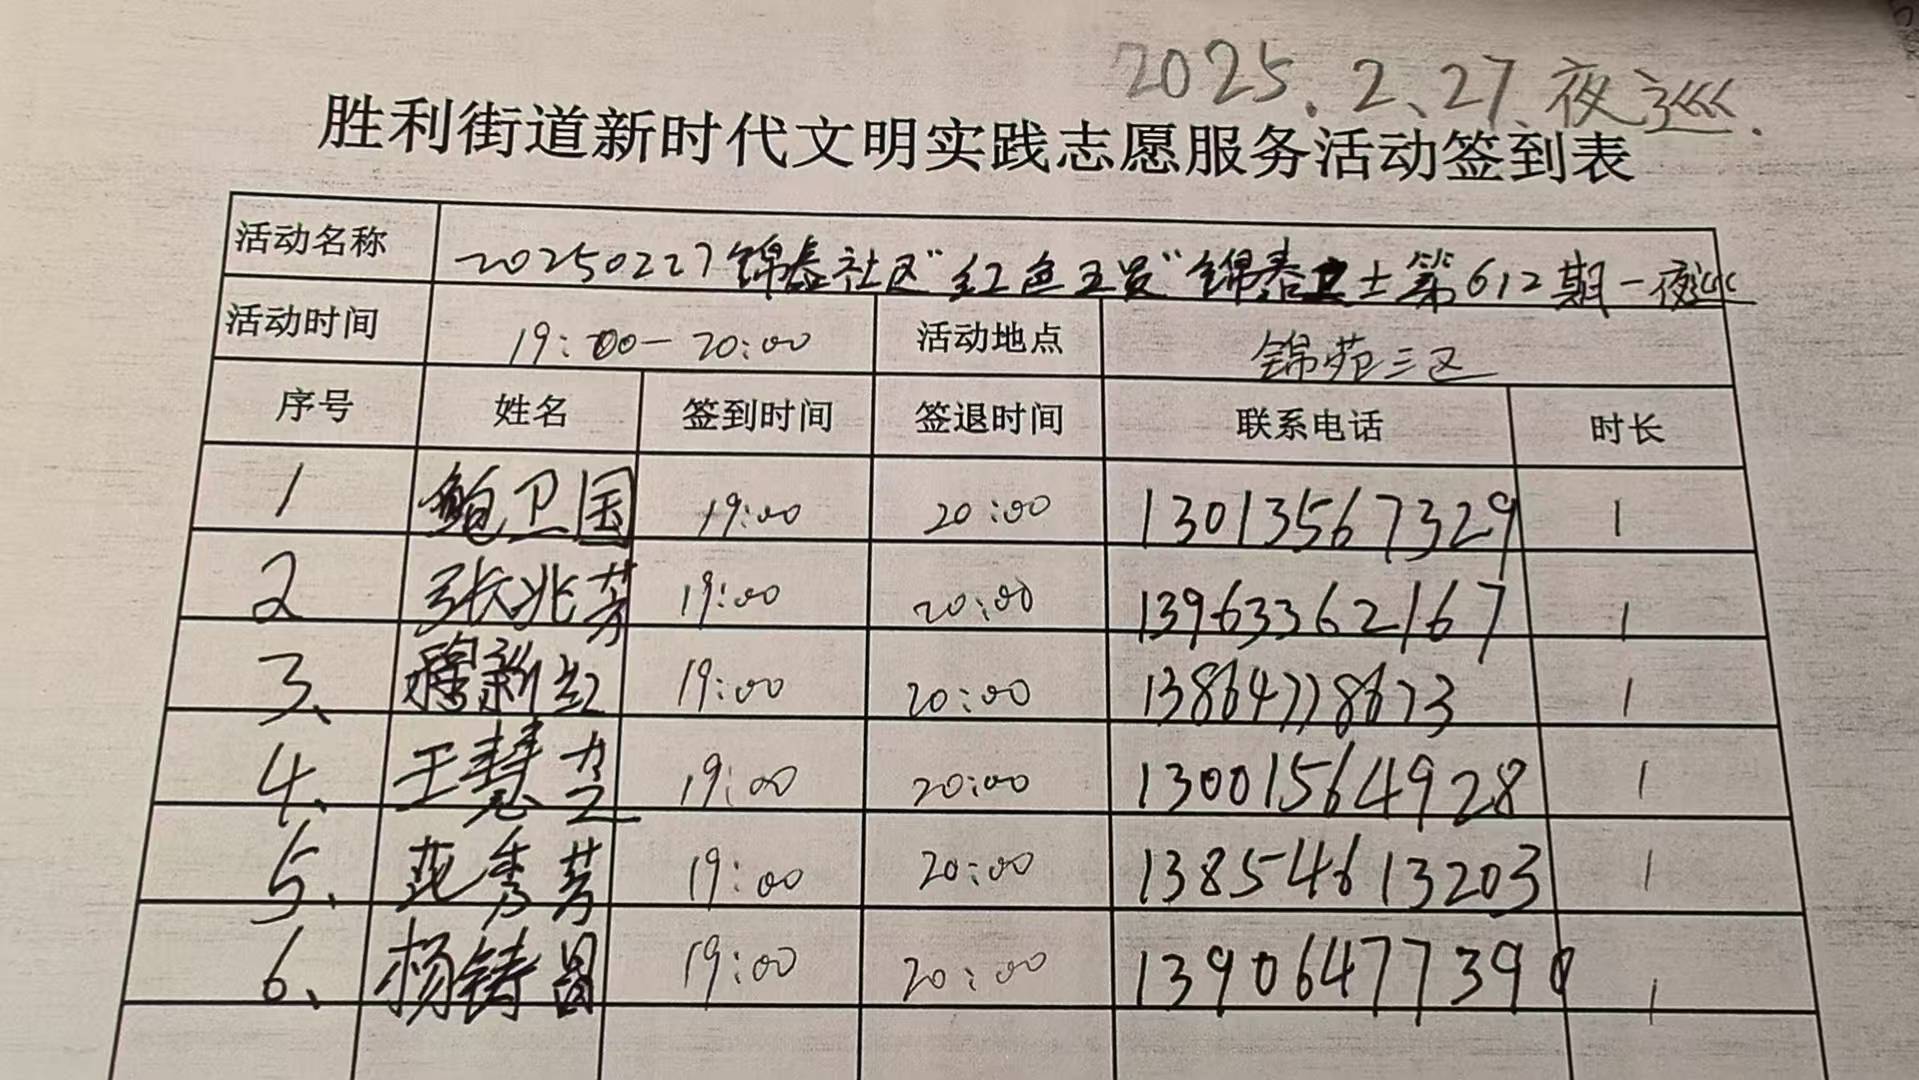 2025.2.27.夜巡.
胜利街道新时代文明实践志愿服务活动签到表
活动名称 20250227锦泰社区"红色五员"锦泰卫士第612期一夜巡
活动时间 19:00-20:00 活动地点 锦苑三区
序号 姓名 签到时间 签退时间 联系电话 时长
1 鲍卫国 19:00 20:00 13013567329 1
2 张兆芳 19:00 20:00 13963362167 1
3、 新红 19:00 20:00 13864778673 1
4、 王慧芝 19:00 20:00 13001564928 1
5. 范秀芳 19:00 20:00 13854613203 1
6、 杨铸昌 19:00 20:00 13906477390 1